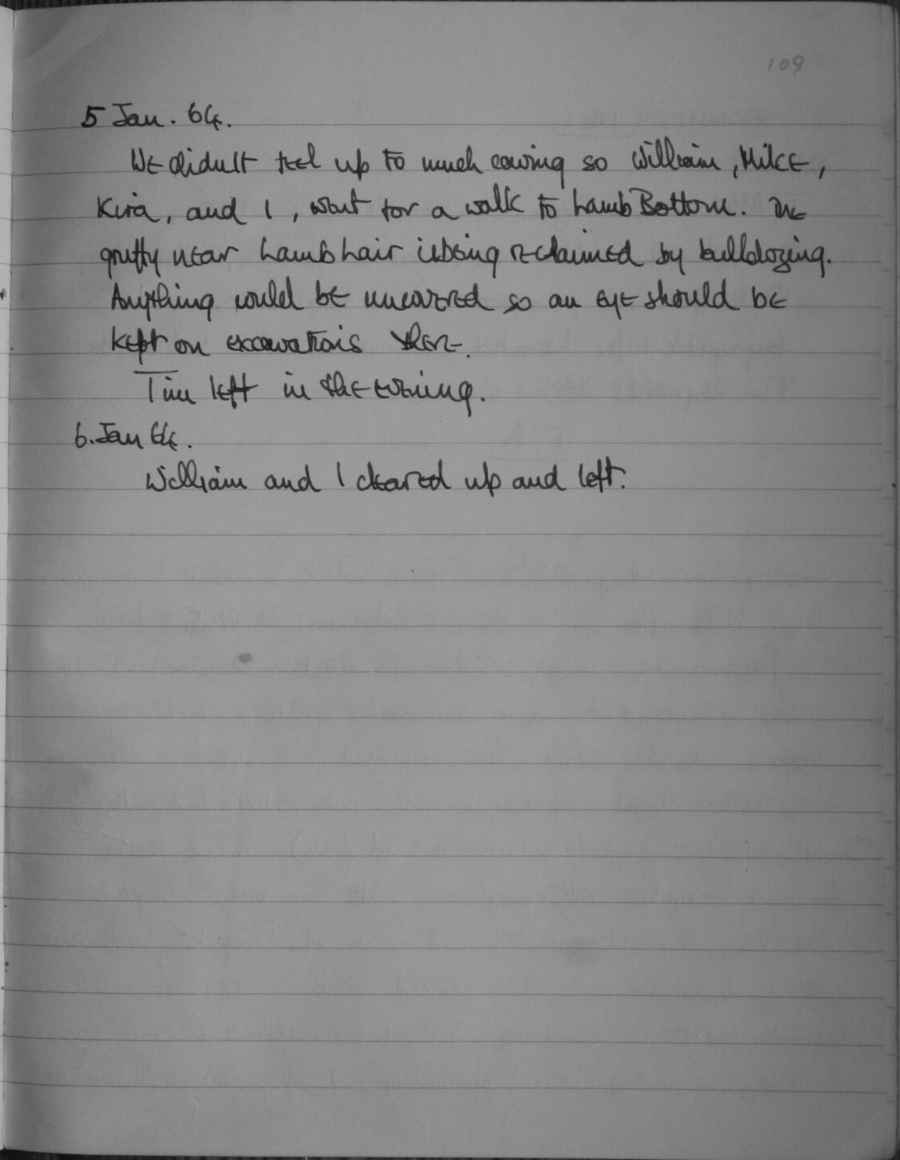 109
5 Jan. 64.
We didn't feel up to much caving so William, Mike,
Kira, and I, went for a walk to Lamb Bottom. The
gruffy near Lamb Lair is being reclaimed by bulldozing.
Anything could be uncovered so an eye should be
kept on excavations there.
Tim left in the evening.
6. Jan 64.
William and I cleared up and left.